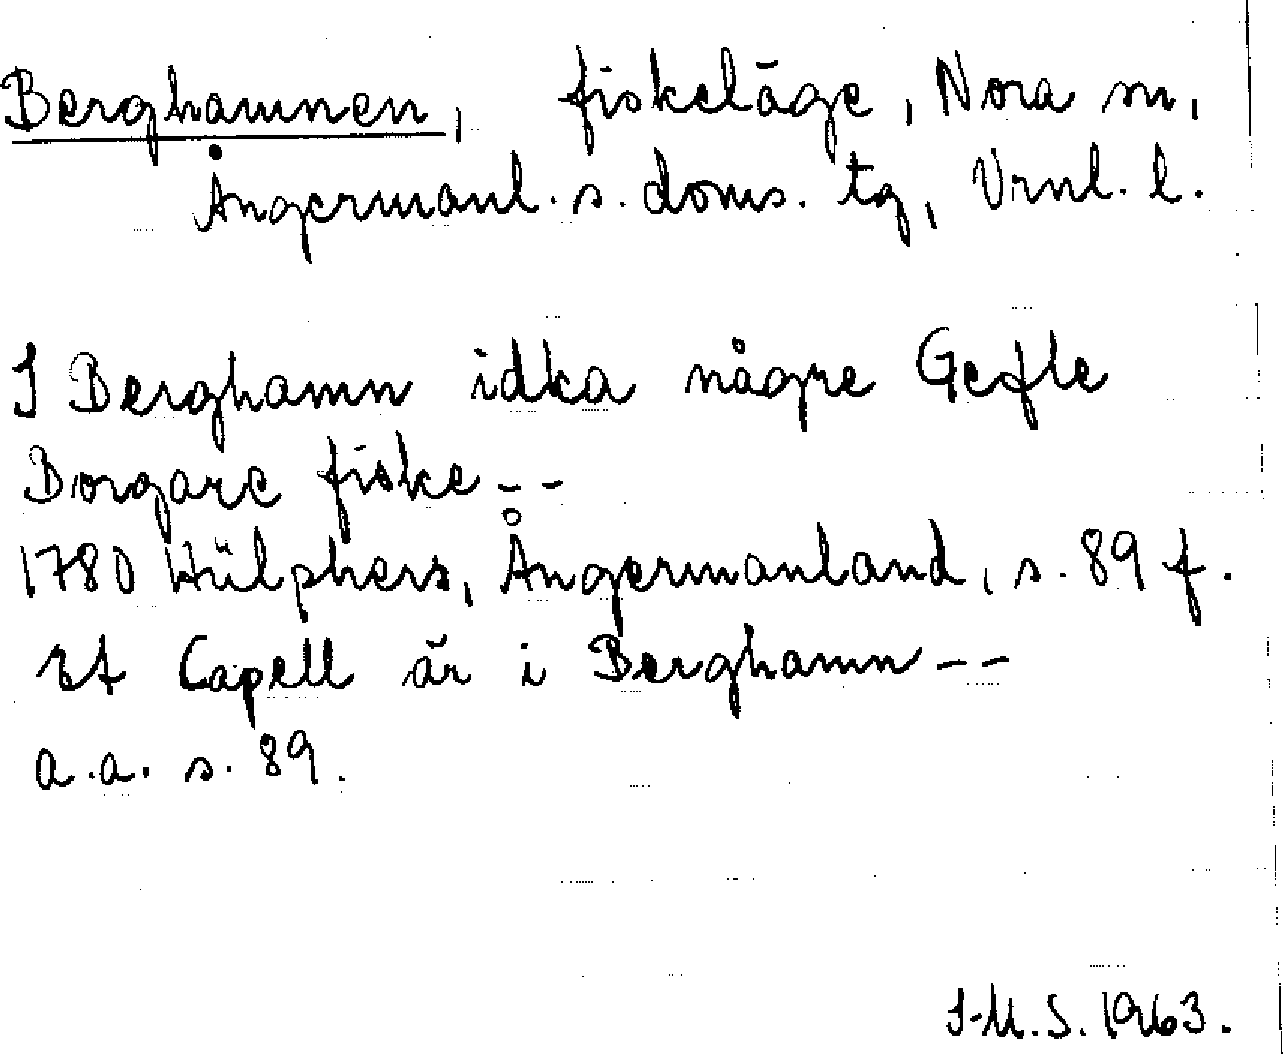 Berghamnen, fiskeläge, Nora sn,
Ångermanl. s. doms. tg, Vrnl. l.
I Berghamn idka någre Gefle
Borgare fiske --
1780 Hülphers, Ångermanland, s. 89 f.
Et Capell är i Berghamn --
a.a. s. 89.
I-M.S. 1963.